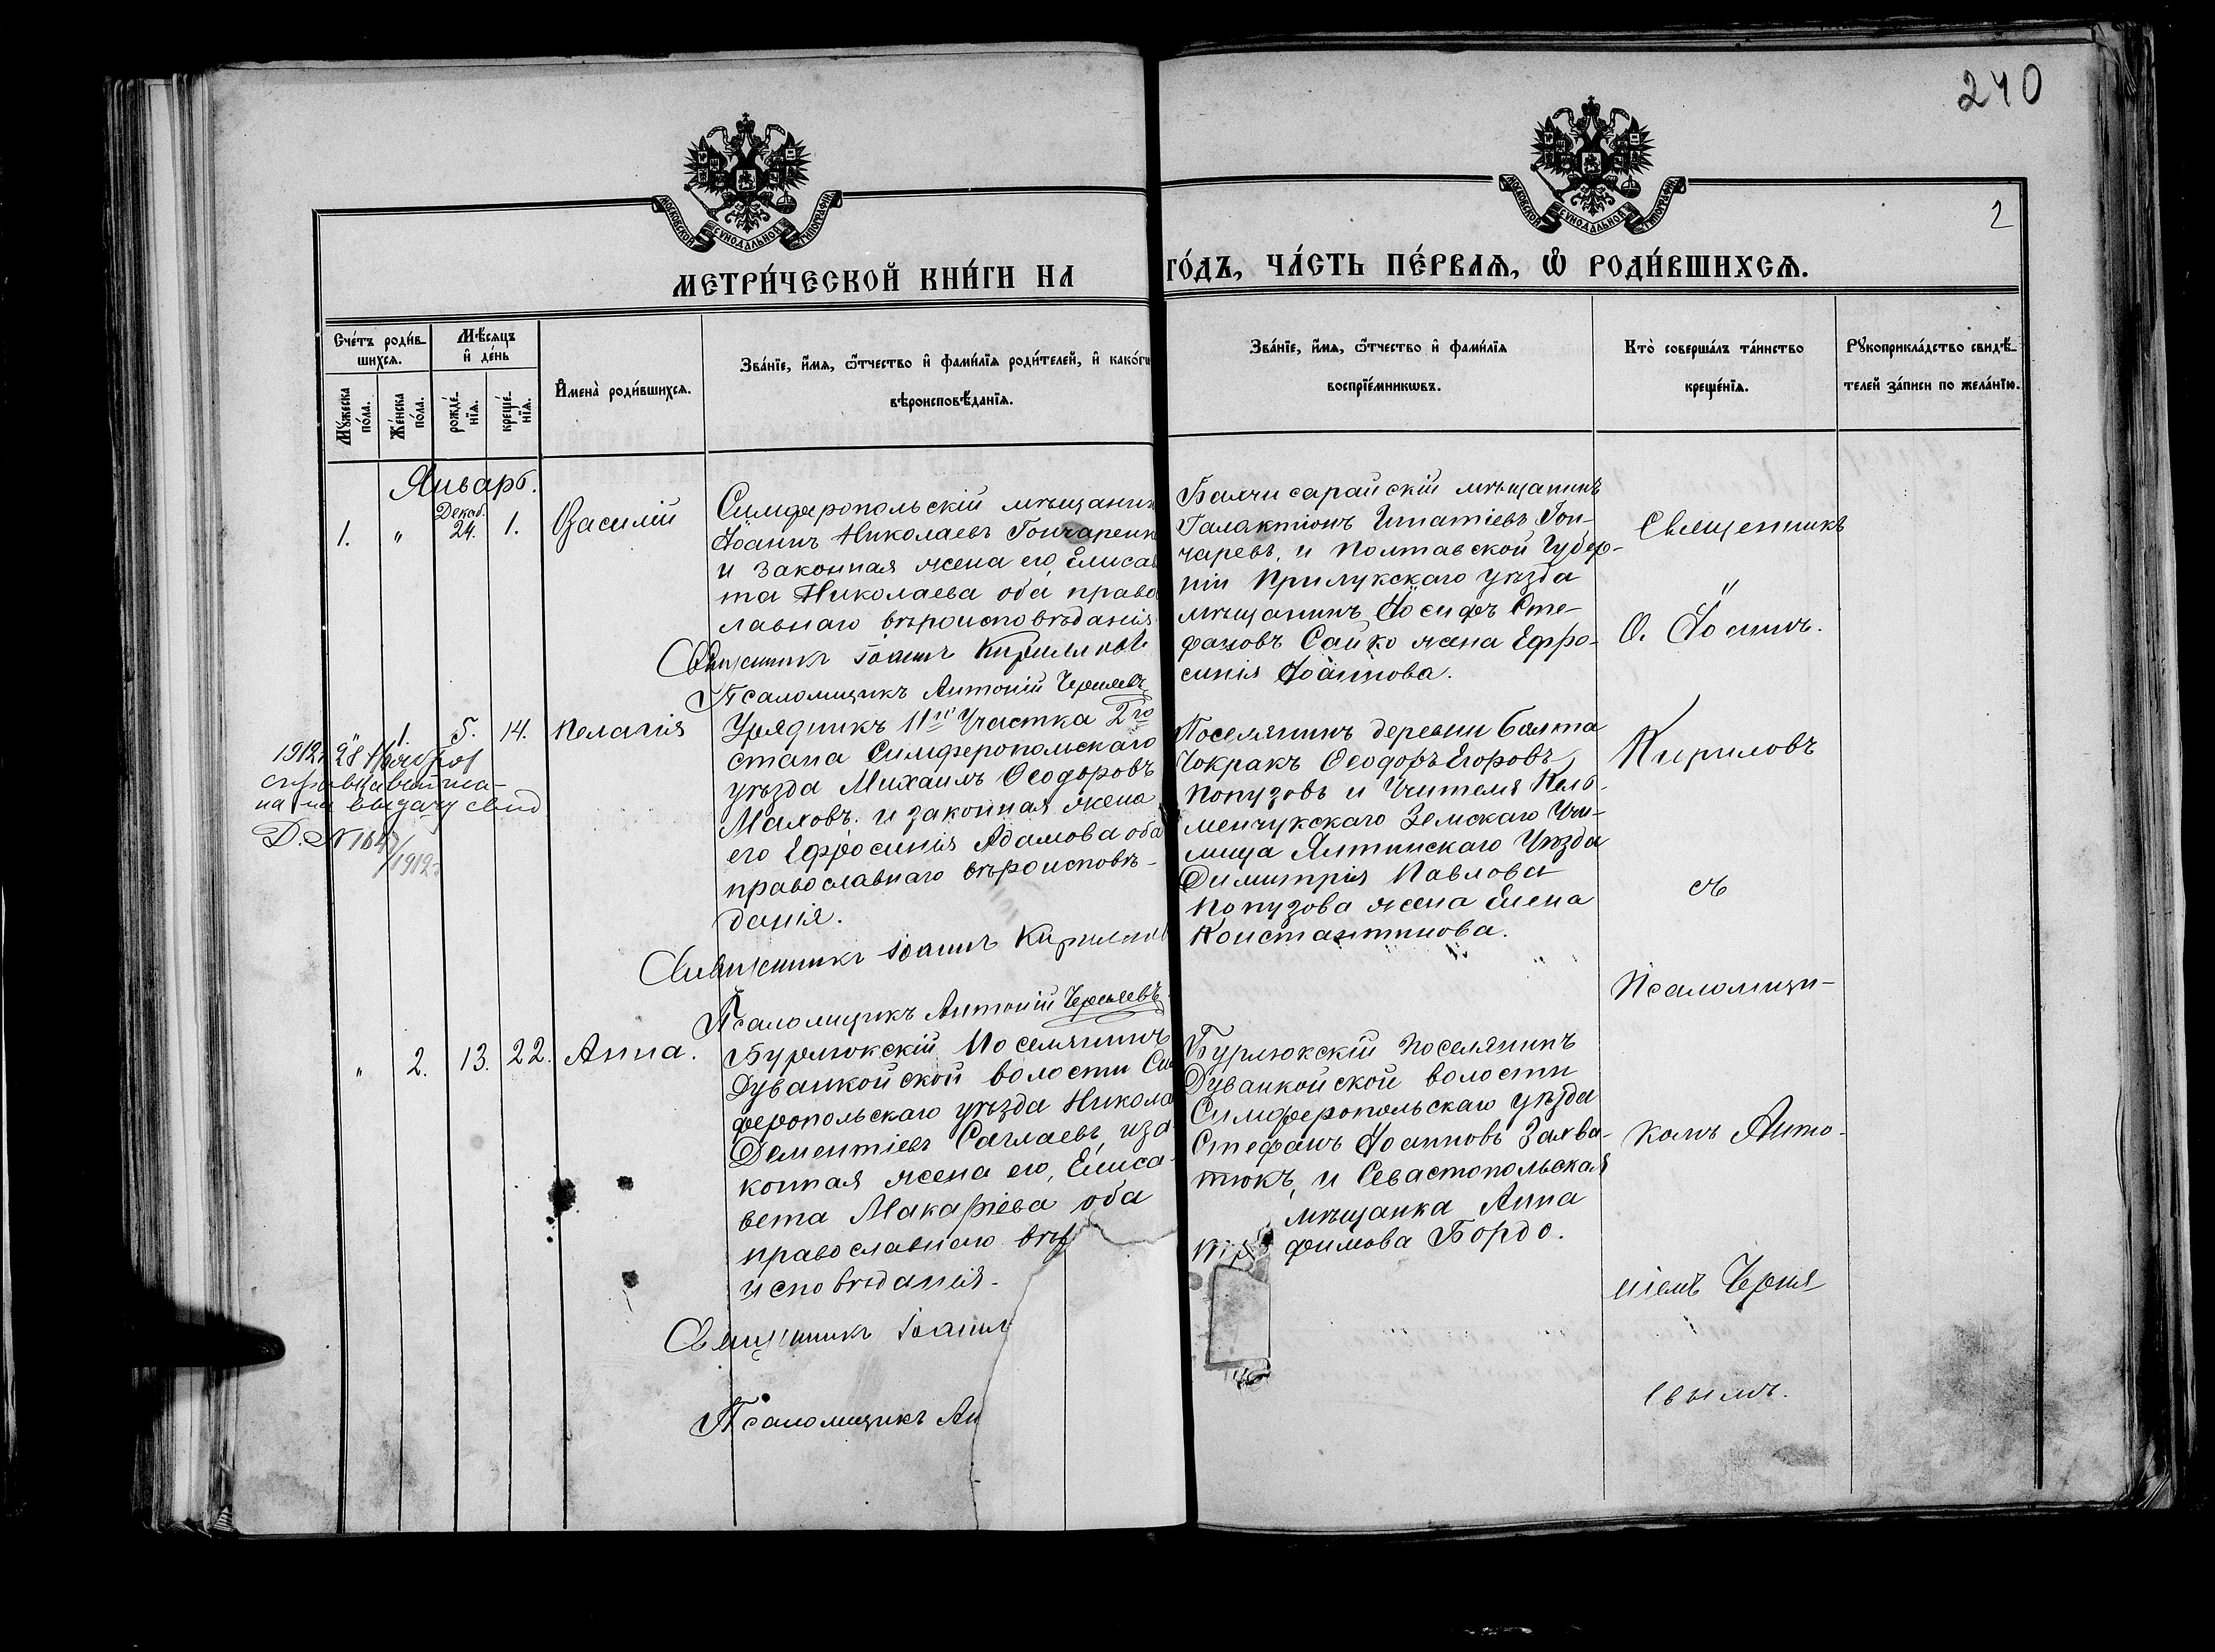 240
2
МОСКОВСКОЙ СУНОДАЛЬНОЙ ТИПОГРАФІИ
МОСКОВСКОЙ СУНОДАЛЬНОЙ ТИПОГРАФІИ
МЕТРИ́ЧЕСКОЙ КНИ́ГИ НА
ГО́ДЪ, ЧА́СТЬ ПЕ́РВАѦ, Ѡ҆ РОДИ́ВШИХСѦ.
Сче́тъ роди́в-
шихсѧ.
Мꙋ́жеска
по́ла.
Же́нска
по́ла.
Мѣ́сѧцъ
и҆ де́нь
рожде́-
нїѧ.
креще́-
нїѧ.
И҆мена̀ роди́вшихсѧ.
Зва́нїе, и҆́мѧ, ѻ҆́тчество и҆ фами́лїѧ роди́телей, и҆ како́гѡ
вѣроисповѣ́данїѧ.
Зва́нїе, и҆́мѧ, ѻ҆́тчество и҆ фами́лїѧ
воспрїе́мникѡвъ.
Кто̀ соверша́лъ та́инство
креще́нїѧ.
Рꙋкоприкла́дство свидѣ́-
телей за́писи по жела́нїю.
Январь.
1.
"
Декаб.
24.
1.
Василій
Симферопольскій мѣщанин
Іоаннъ Николаевъ Гончаренк
и законная жена его Елисав
та Николаева оба право
лавнаго вѣроисповѣданія.
Священникъ Іоаннъ Кирилловъ
Псаломщикъ Антоній Чернявъ
Бахчисарайскій мѣщанинъ
Галактіонъ Игнатіевъ Гон-
чаревъ, и Полтавской Губер-
ніи Прилукскаго уѣзда
мѣщанинъ Іосифъ Сте-
фановъ Сайко жена Ефро-
синія Іоаннова.
1.
5.
14.
Пелагія
Урядникъ 11го Участка 2го
стана Симферопольскаго
уѣзда Михаилъ Ѳеодоровъ
Маховъ. и законная жена
его Ефросинія Адамова оба
православнаго вѣроисповѣ-
данія.
Священникъ Іоаннъ Кириллов
Псаломщикъ Антоній Чернявъ
Поселянинъ деревни Балта
Чокракъ Ѳеодоръ Егоровъ
Попузовъ и Учителя Кель-
менчукскаго Земскаго Учи-
лища Ялтинскаго Уѣзда
Димитрія Павлова
Попузова жена Елена
Константинова.
1912 г. 28
на на выдачу свид
/1912 г.
"
2.
13.
22.
Анна.
Бурлюкскій Поселянинъ
Дуванкойской волости Си
феропольскаго уѣзда Никола
Дементіевъ Саглаевъ, и за
конная жена его, Елиса-
вета Макаріева оба
православнаго вѣр
исповѣданія.
Священникъ Іоанн
Псаломщикъ Ан
Бурлюкскій Поселянинъ
Дуванкойской волости
Симферопольскаго уѣзда
Стефанъ Іоанновъ Захва-
тюкъ, и Севастопольская
мѣщанка Анна
фимова Бордо.
Священникъ
"
О. Іоаннъ.
Кириловъ
съ
Псаломщи-
комъ Анто-
ніемъ Черня
евымъ.